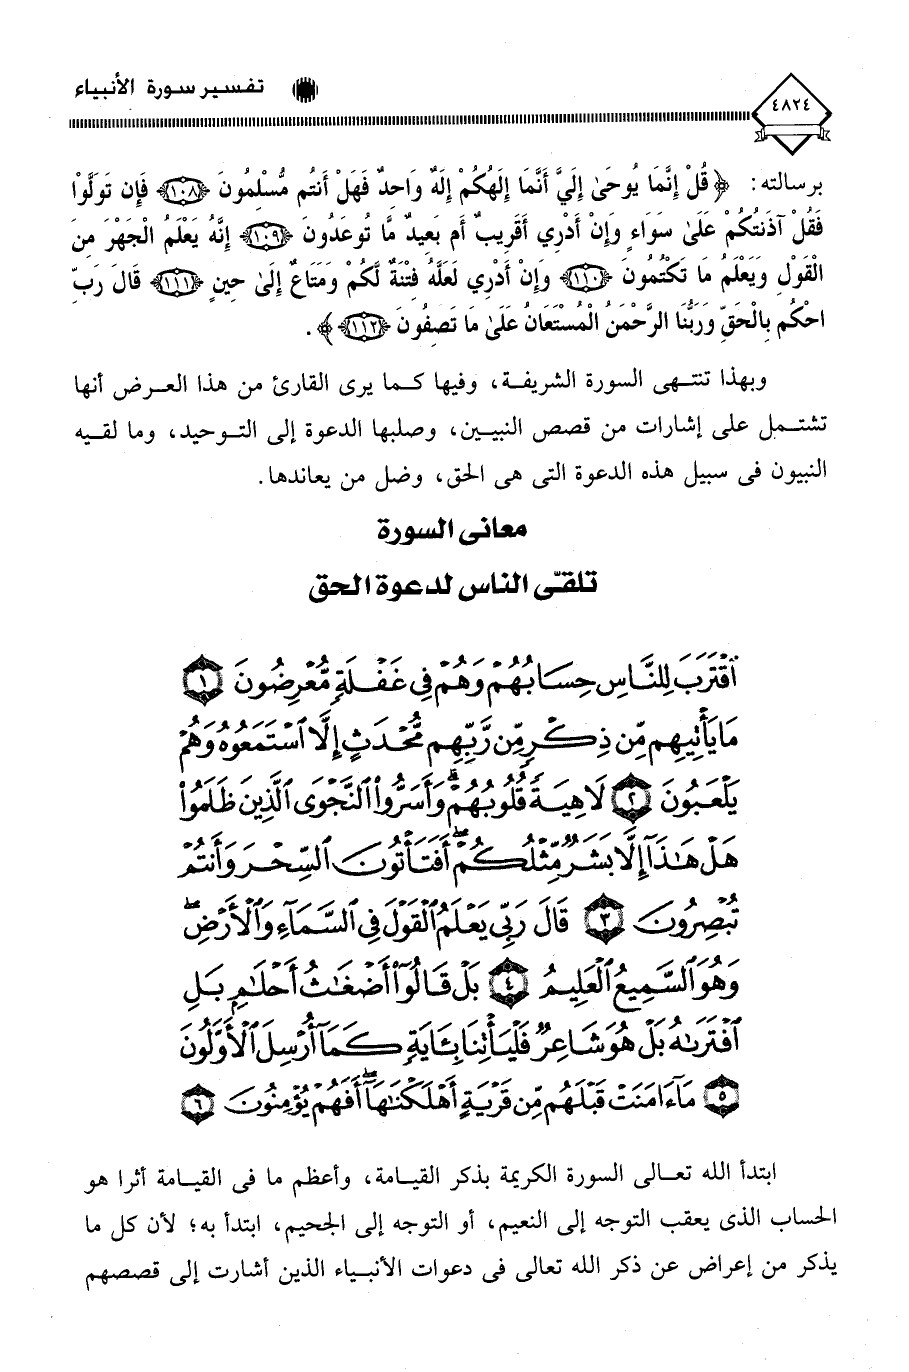 تفسير سورة الأنبياء
٤٨٢٤
برسالته: ﴿ قُلْ إِنَّمَا يُوحَىٰ إِلَيَّ أَنَّمَا إِلَهُكُمْ إِلَهٌ وَاحِدٌ فَهَلْ أَنتُم مُّسْلِمُونَ ﴿١٠٨﴾ فَإِن تَوَلَّوْا
فَقُلْ آذَنتُكُمْ عَلَىٰ سَوَاءٍ وَإِنْ أَدْرِي أَقَرِيبٌ أَم بَعِيدٌ مَّا تُوعَدُونَ ﴿١٠٩﴾ إِنَّهُ يَعْلَمُ الْجَهْرَ مِنَ
الْقَوْلِ وَيَعْلَمُ مَا تَكْتُمُونَ ﴿١١٠﴾ وَإِنْ أَدْرِي لَعَلَّهُ فِتْنَةٌ لَّكُمْ وَمَتَاعٌ إِلَىٰ حِينٍ ﴿١١١﴾ قَالَ رَبِّ
احْكُم بِالْحَقِّ وَرَبُّنَا الرَّحْمَنُ الْمُسْتَعَانُ عَلَىٰ مَا تَصِفُونَ ﴿١١٢﴾ ﴾ .
وبهذا تنتهى السورة الشريفة، وفيها كما يرى القارئ من هذا العرض أنها
تشتمل على إشارات من قصص النبيين، وصلبها الدعوة إلى التوحيد، وما لقيه
النبيون فى سبيل هذه الدعوة التى هى الحق، وضل من يعاندها.
معانى السورة
تلقى الناس لدعوة الحق
ٱقْتَرَبَ لِلنَّاسِ حِسَابُهُمْ وَهُمْ فِى غَفْلَةٍ مُّعْرِضُونَ ﴿١﴾
مَا يَأْتِيهِم مِّن ذِكْرٍ مِّن رَّبِّهِم مُّحْدَثٍ إِلَّا ٱسْتَمَعُوهُ وَهُمْ
يَلْعَبُونَ ﴿٢﴾ لَاهِيَةً قُلُوبُهُمْ ۗ وَأَسَرُّوا۟ ٱلنَّجْوَى ٱلَّذِينَ ظَلَمُوا۟
هَلْ هَٰذَآ إِلَّا بَشَرٌ مِّثْلُكُمْ ۖ أَفَتَأْتُونَ ٱلسِّحْرَ وَأَنتُمْ
تُبْصِرُونَ ﴿٣﴾ قَالَ رَبِّى يَعْلَمُ ٱلْقَوْلَ فِى ٱلسَّمَآءِ وَٱلْأَرْضِ ۖ
وَهُوَ ٱلسَّمِيعُ ٱلْعَلِيمُ ﴿٤﴾ بَلْ قَالُوٓا۟ أَضْغَٰثُ أَحْلَٰمٍ بَلِ
ٱفْتَرَىٰهُ بَلْ هُوَ شَاعِرٌ فَلْيَأْتِنَا بِـَٔايَةٍ كَمَآ أُرْسِلَ ٱلْأَوَّلُونَ
﴿٥﴾ مَآ ءَامَنَتْ قَبْلَهُم مِّن قَرْيَةٍ أَهْلَكْنَٰهَآ ۖ أَفَهُمْ يُؤْمِنُونَ ﴿٦﴾
ابتدأ الله تعالى السورة الكريمة بذكر القيامة، وأعظم ما فى القيامة أثرا هو
الحساب الذى يعقب التوجه إلى النعيم، أو التوجه إلى الجحيم، ابتدأ به؛ لأن كل ما
يذكر من إعراض عن ذكر الله تعالى فى دعوات الأنبياء الذين أشارت إلى قصصهم